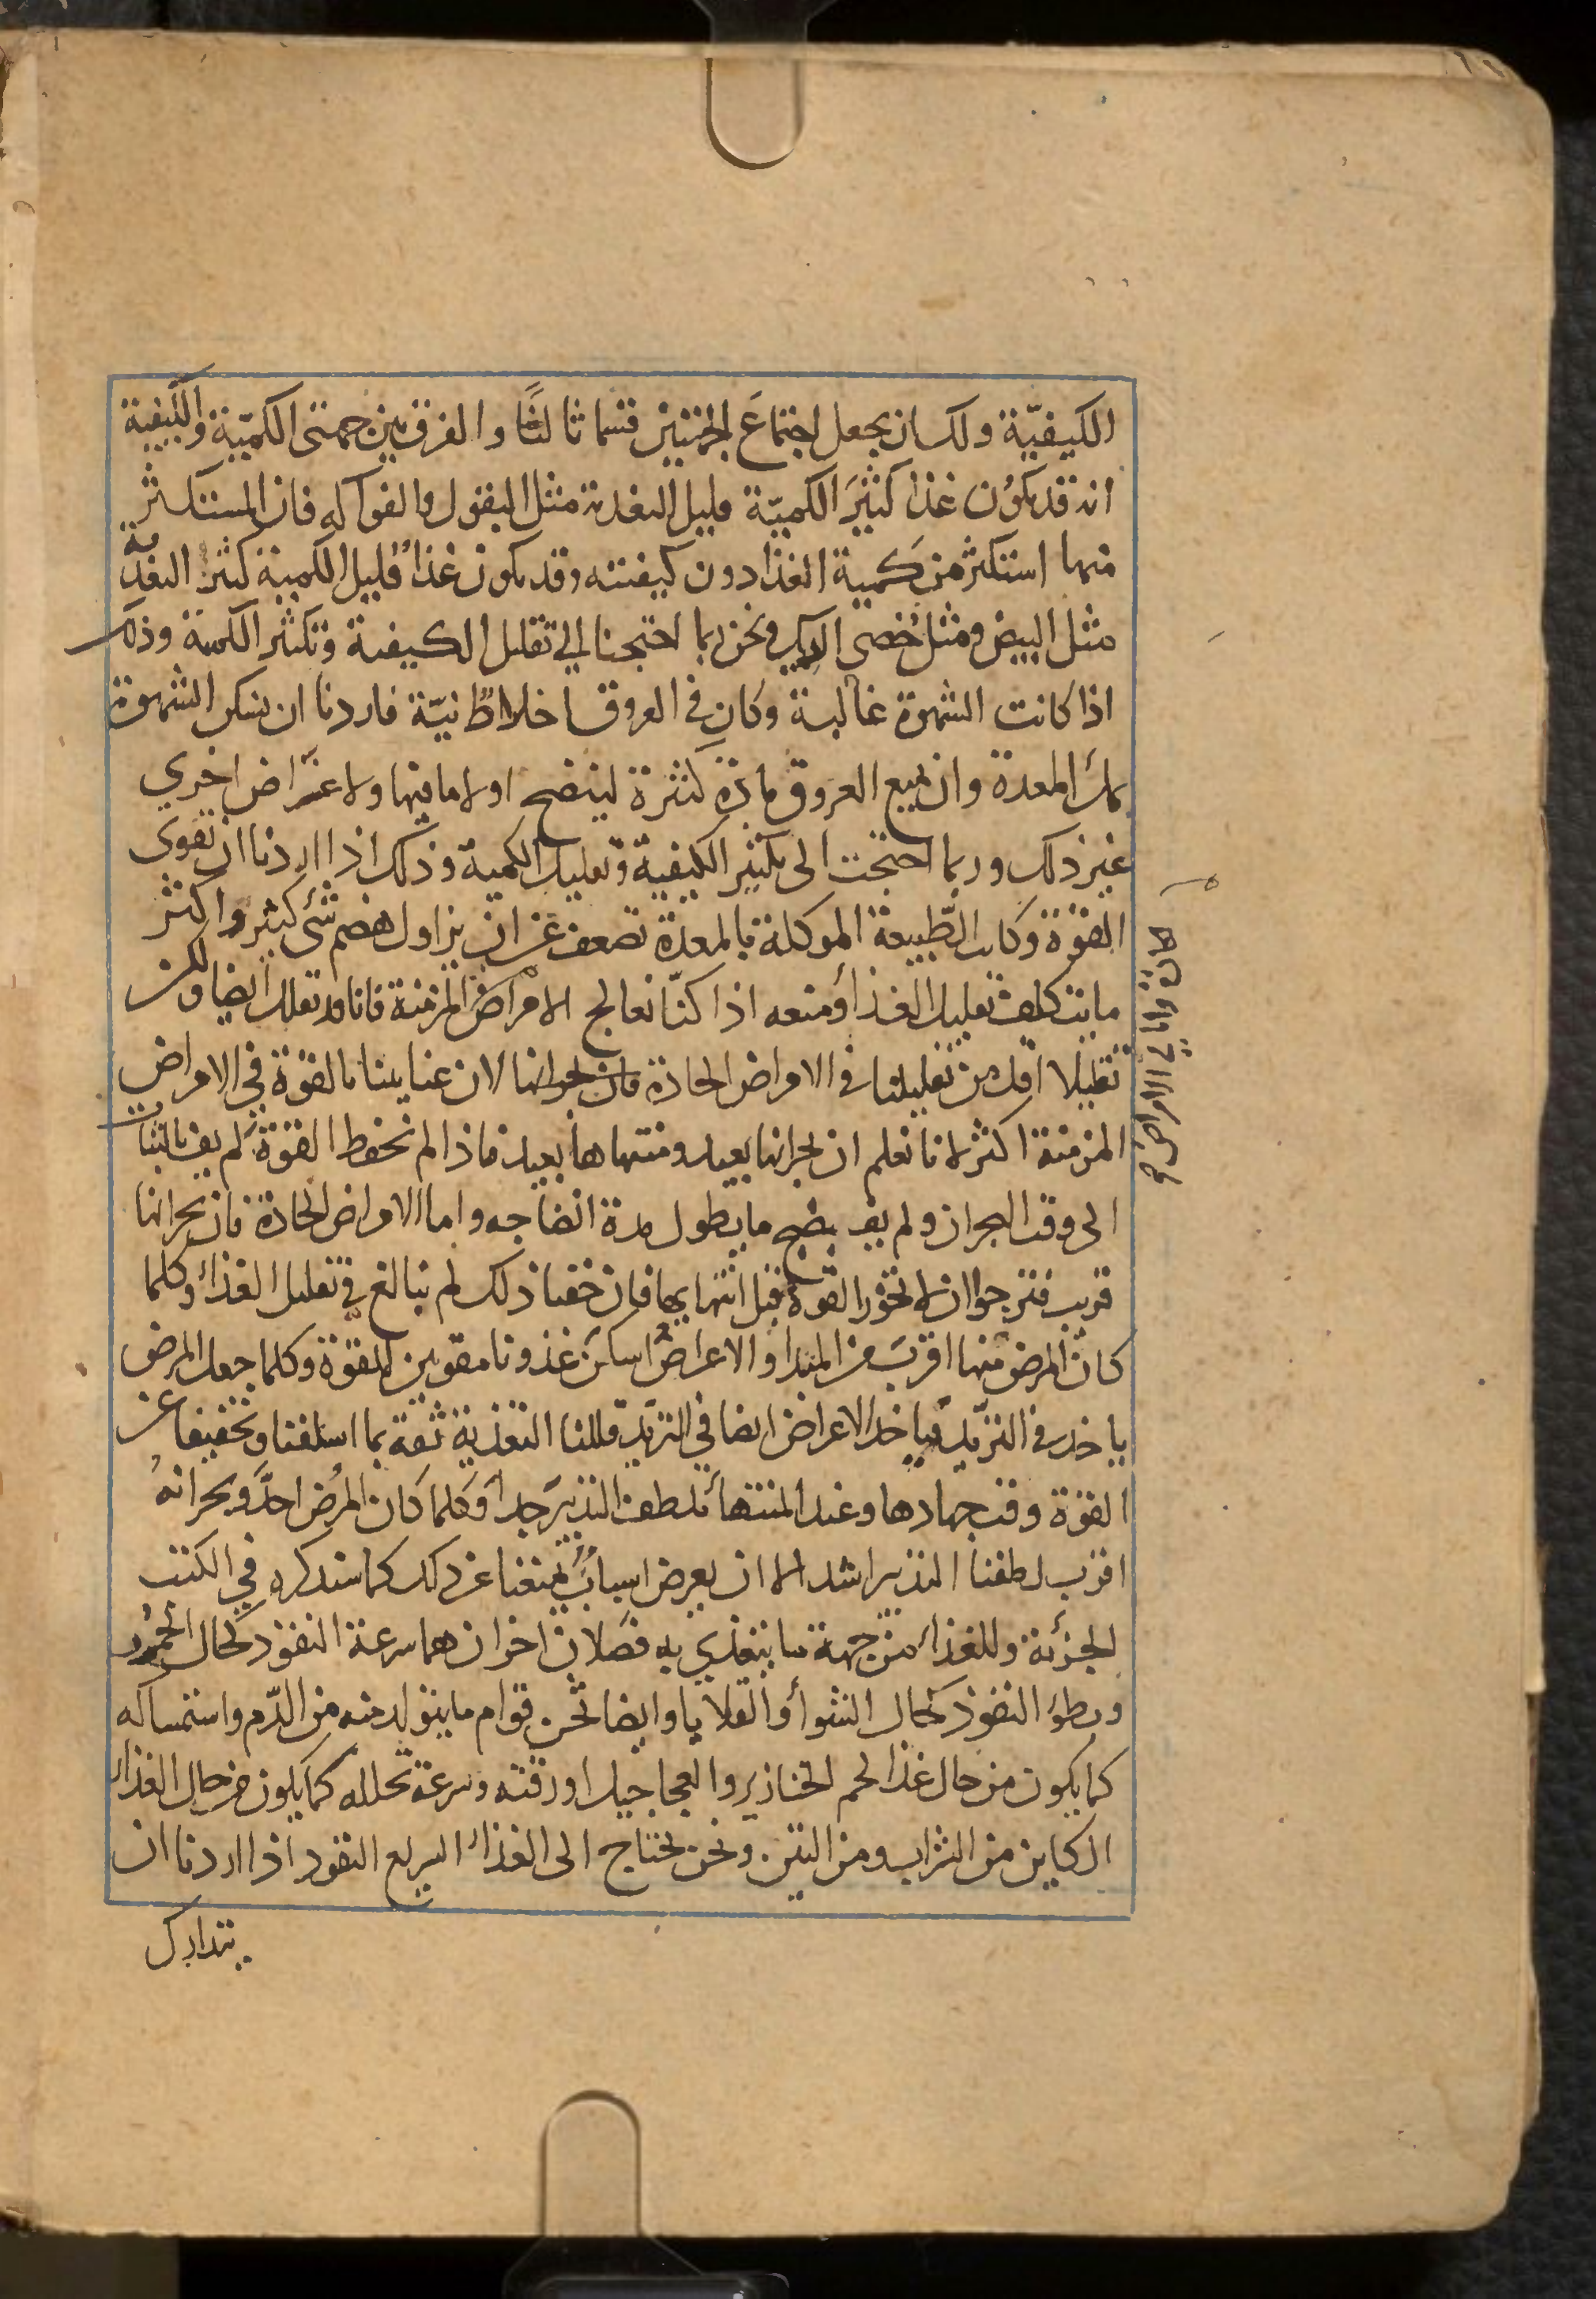 الكيفيّة ولك ان يجعل اجتماعَ الجهتين قسما ثالثًا والفرق بين جهتى الكميّة والكيفية
انه قد يكون غذا كثيرَ الكميّة قليل التغذية مثل البقول والفواكه فان المستكثر
منهما استكثر من كمية الغذا دون كيفيته وقد يكون غذاٌ قليل الكمية كثير التغذية
مثل البيض ومثل خُصى الديك ونحن ربما احتجنا الى تقليل الكيفية وتكثير الكمية وذلك
اذا كانت الشهوة غالبة وكان فى العروق اخلاطٌ نيّة فاردنا ان نسكن الشهوة
بملئ المعدة وان نمنع العروق مادة كثيرة لينضج اولا ما فيها ولاغراض اخري
غير ذلك وربما احتجت الى تكثير الكيفية وتقليل الكمية وذلك اذا اردنا ان نقوى
القوّة وكانت الطّبيعة الموكلة بالمعدة تضعف عن ان يزاول هضم شئ كثير واكثر
ما يتكلف تقليل الغذا ومنعه اذا كنّا نعالج الامراض المزمنة فانا قد نقلل ايضا ولكن
تقليلا اقل من تقليلنا فى الامراض الحادة فان بحرانها لان عنايتنا بالقوة فى الامراض
المزمنة اكثر لانا نعلم ان بحرانها بعيد ومنتهاها بعيد فاذا لم نحفظ القوة لم يف بالثبات
الى وقت البحران ولم يف بنضج ما يطول مدة انضاجه واما الامراض الحادة فان بحرانها
قريب فنرجوا ان لا تخور القوة قبل انتهايها فان خفنا ذلك لم نبالغ فى تقليل الغذاء وكلما
كان المرض منها اقربَ من المبدا والاعراض اسكن غذونا مقوين للقوة وكلما جعل المرض
ياخذ فى التزيّد وياخذ الاعراض ايضا في التزيد قللنا التغذية ثقة بما اسلفنا وتخفيفا عن
القوة وقت جهادها وعند المنتهاء نلطف التدبير جدا وكلما كان المرض احدَّ وبحرانه
اقرب لطفنا التدبير اشد الا ان يعرض اسبابٌ تمنعنا عن ذلك كما سنذكره في الكتب
الجزئية وللغذاء من جهة ما يتغذي به فصلان اخران هما سرعة النفوذ كحال الخمور
وبطؤ النفوذ كحال الشواء والقلايا وايضا ثخن قوام ما يتولد منه من الدّم واستمساكه
كما يكون من حال غذا لحم الخنازير والعجاجيل او رقته وسرعة تحلله كما يكون من حال الغذاء
الكاين من الشراب ومن التين ونحن نحتاج الى الغذاء السريع النفوذ اذا اردنا ان
يتدارك